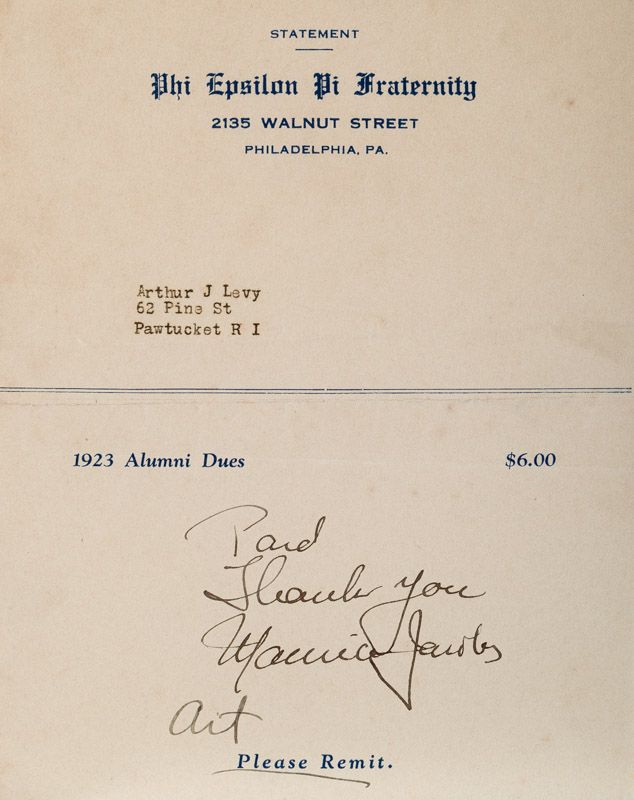 STATEMENT
Phi Epsilon Pi Fraternity
2135 WALNUT STREET
PHILADELPHIA, PA.
Arthur J Levy
62 Pine St
Pawtucket R I
1923 Alumni Dues $6.00
Paid
Thank you
Maurice Jacobs
Art
Please Remit.